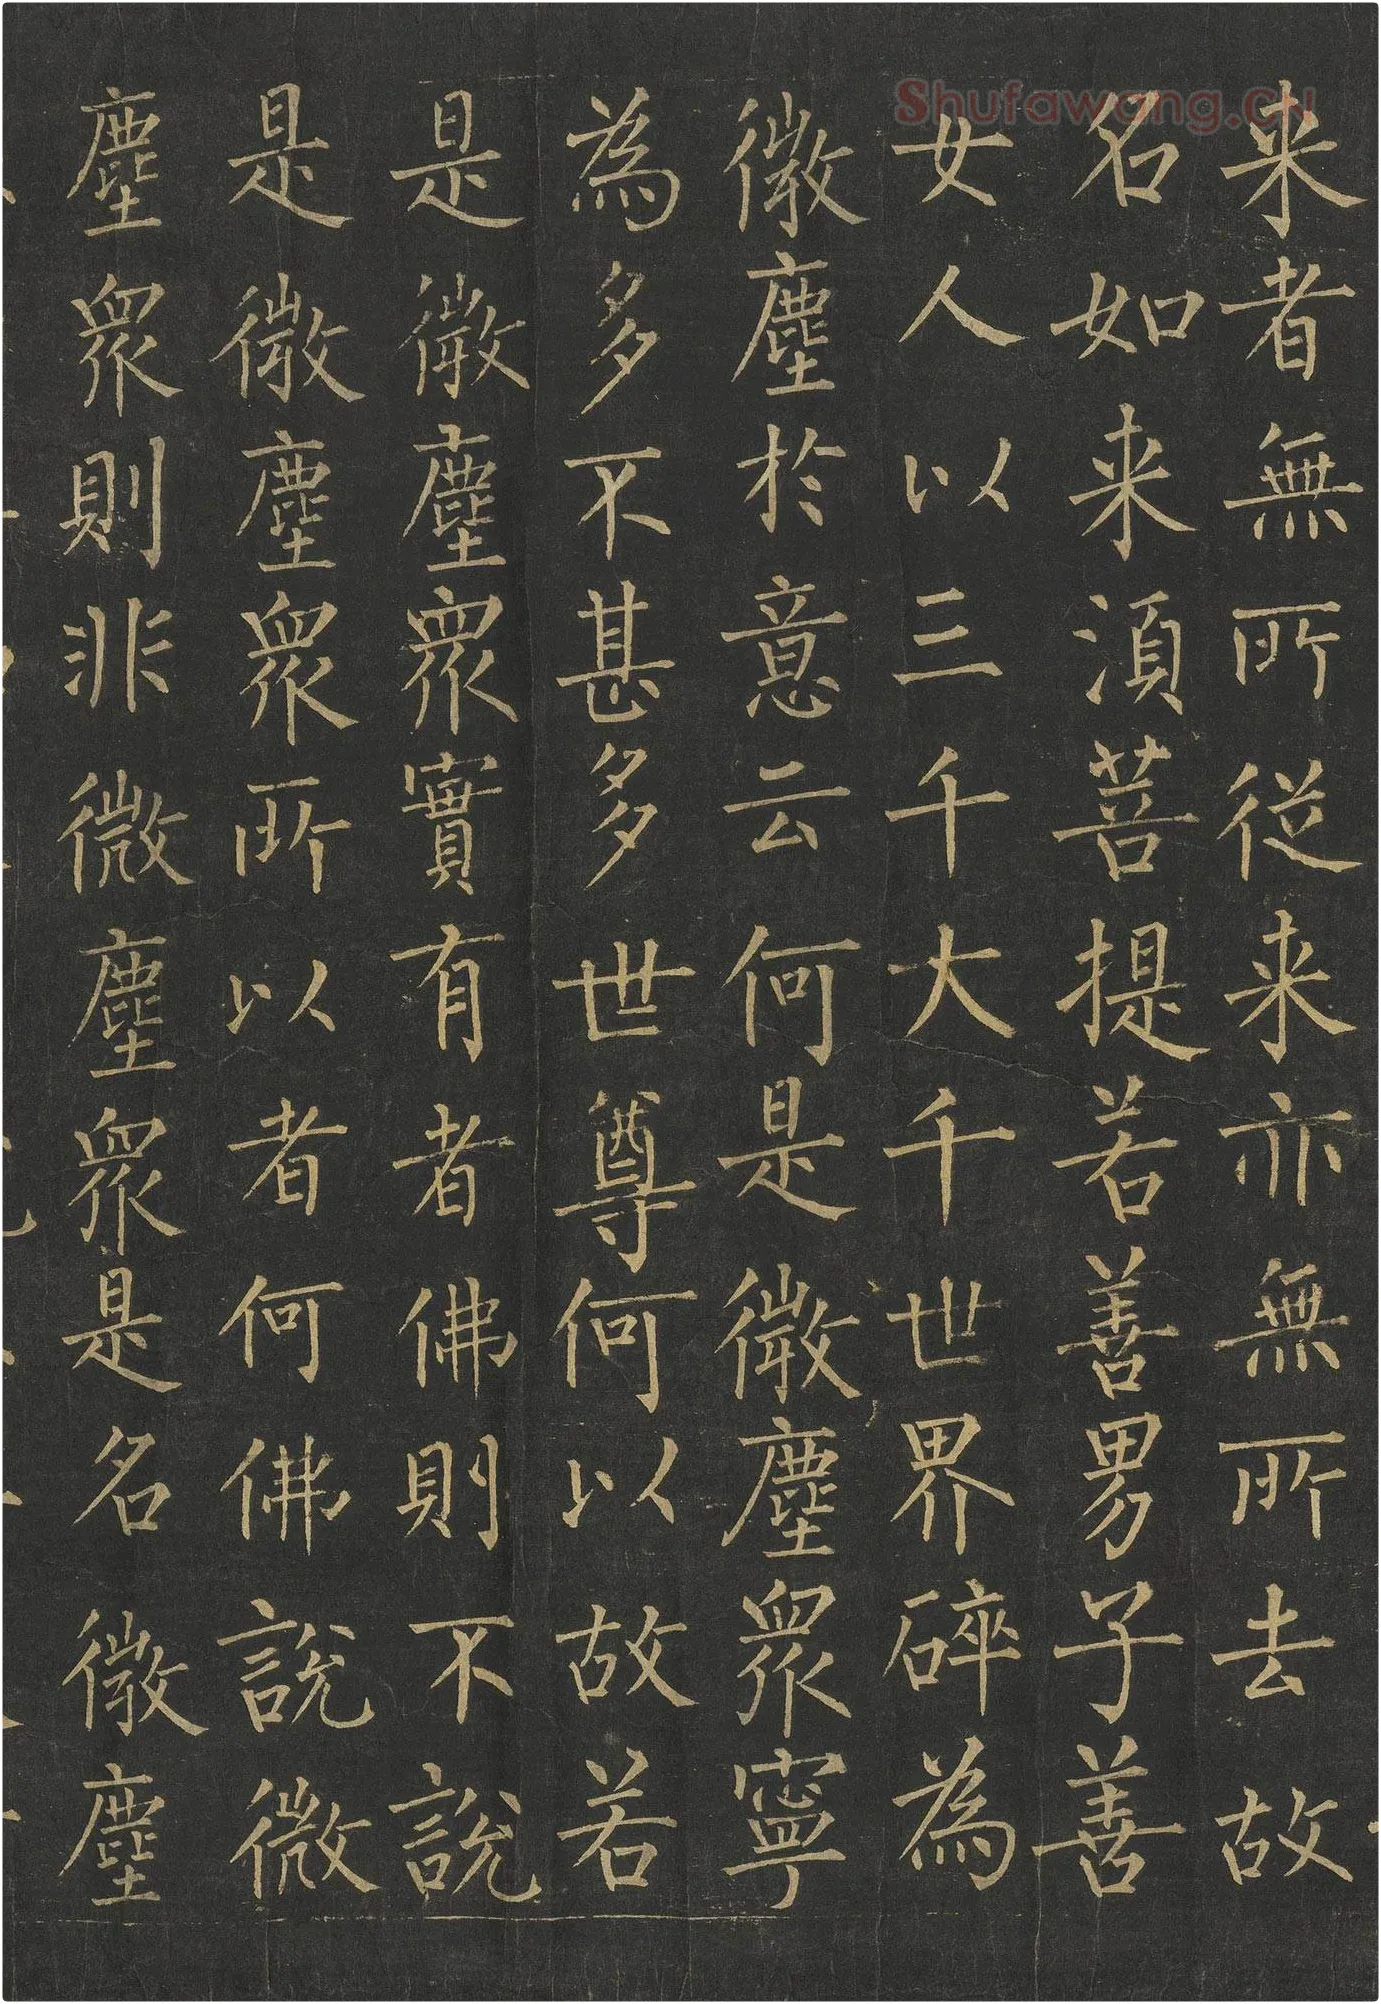 Shufawang.CN
来者無所從来亦無所去故
名如来須菩提若善男子善
女人以三千大千世界碎為
微塵於意云何是微塵眾寧
為多不甚多世尊何以故若
是微塵眾實有者佛則不說
是微塵眾所以者何佛說微
塵眾則非微塵眾是名微塵